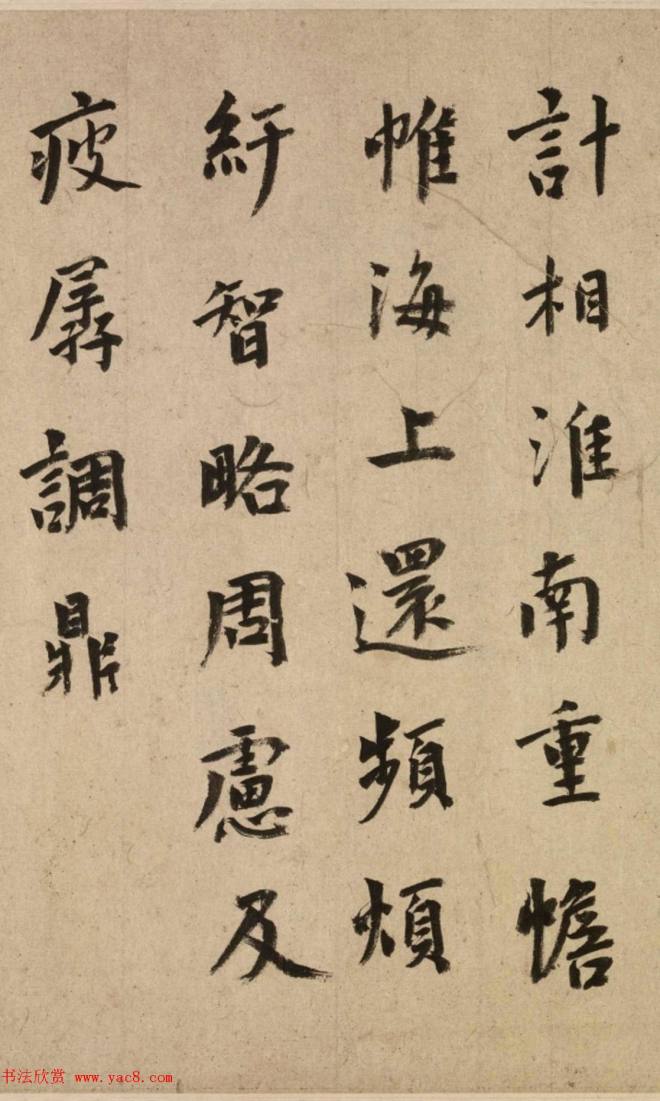 計相淮南重幨
帷海上還頻煩
紆智略周慮及
疲孱調鼎
书法欣赏 www.yac8.com